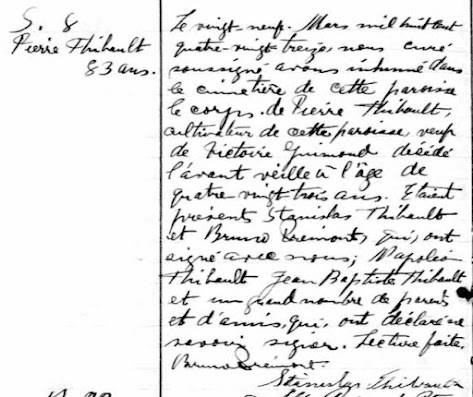 S. 8
Pierre Thibault
83 ans.
Le vingt-neuf Mars mil huit cent
quatre-vingt treize, nous curé
soussigné avons inhumé dans
le cimetière de cette paroisse
le corps de Pierre Thibault,
cultivateur de cette paroisse, veuf
de Victoire Guimond décédé
l'avant veille à l'âge de
quatre vingt trois ans. Etaient
présents Stanislas Thibault
et Bruno Crémont, qui, ont
signé avec nous; Napoléon
Thibault Jean Baptiste Thibault
et un grand nombre de parents
et d'amis, qui, ont déclaré ne
savoir signer. Lecture faite,
Bruno Crémont.
Stanislas Thibault